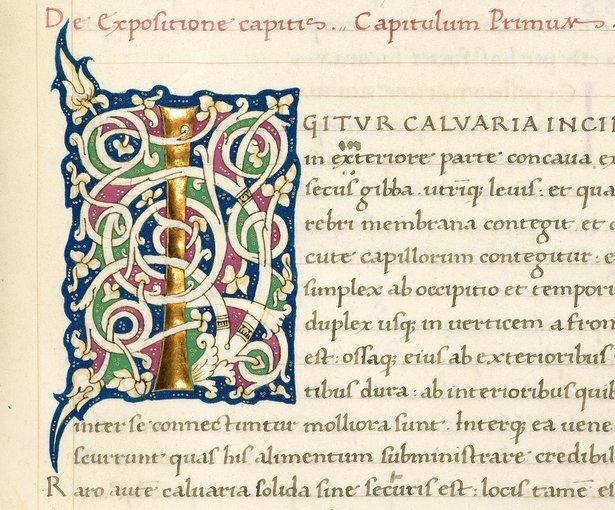 De Expositione capitis. Capitulum Primum.
IGITUR CALVARIA INCI
in exteriore parte concaua ex
secus gibba. utriq; leuis: et qua
rebri membrana contegit et c
cute capillorum contegitur: e
simplex ab occipitio et tempori
duplex usq; in uerticem a fron
est: ossaq; eius ab exterioribus
tibus dura: ab interioribus quib
inter se connectuntur molliora sunt. Interq; ea uene
scurrunt quas his alimentum subministrare credibil
Raro autē caluaria solida sine securis est: locis tamē es